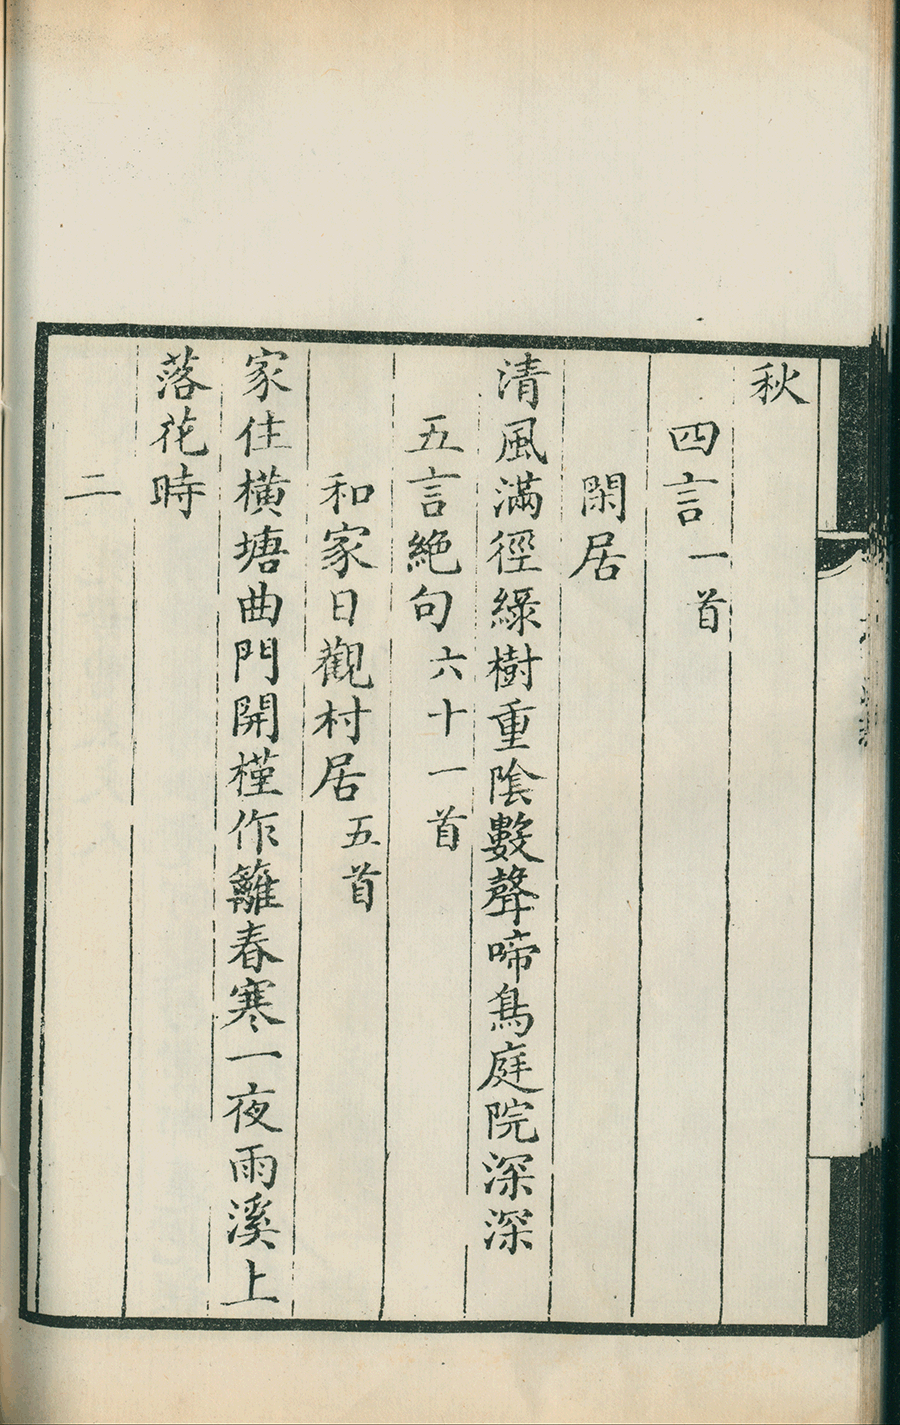 秋
四言一首
閑居
清風滿徑綠樹重陰數聲啼鳥庭院深深
五言絶句六十一首
和家日觀村居五首
家住橫塘曲門開槿作籬春寒一夜雨溪上
落花時
二